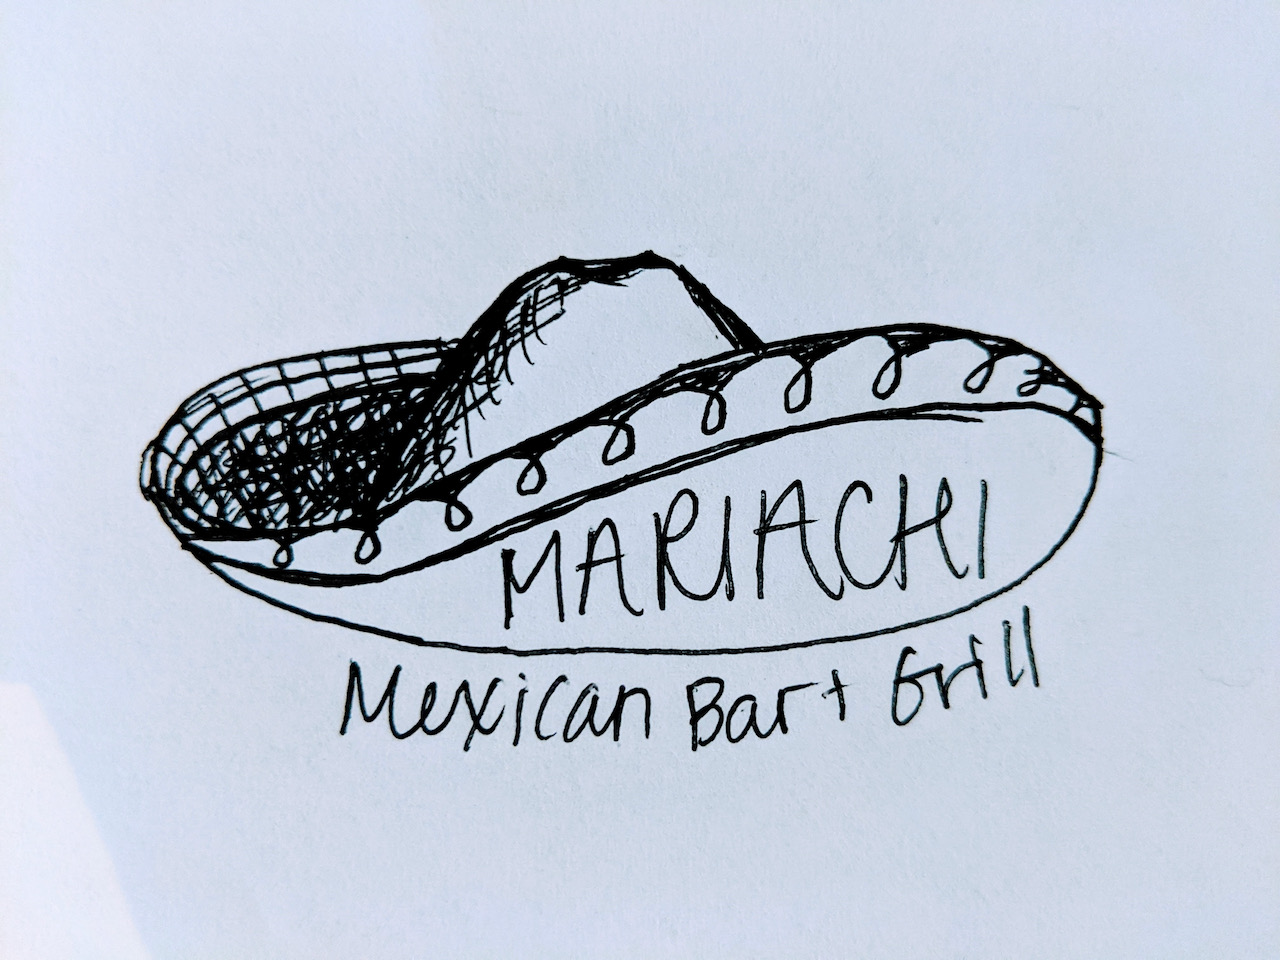 MARIACHI
Mexican Bar + Grill